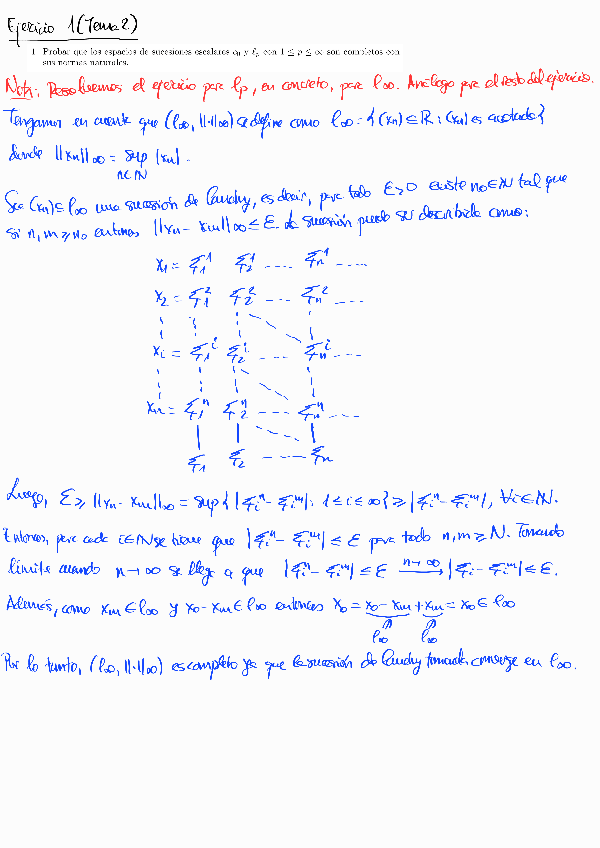 Ejercicio 1 (Tema 2)
1. Probar que los espacios de sucesiones escalares c₀ y ℓₚ con 1 ≤ p ≤ ∞ son completos con
sus normas naturales.
Nota: Resolvemos el ejercicio para lp, en concreto, para l∞. Análogo para el resto del ejercicio.
Tengamos en cuenta que (l∞, ||·||∞) se define como l∞ = {(xn) ⊆ ℝ : (xn) es acotado}
donde ||xn||∞ = sup |xn|.
n∈ℕ
Sea (xn) ⊆ l∞ una sucesión de Cauchy, es decir, para todo ε>0 existe n₀∈ℕ tal que
si n,m ≥ n₀ entonces ||xn - xm||∞ ≤ ε. La sucesión puede ser describida como:
x₁ = ξ₁¹ ξ₂¹ ---- ξₙ¹ ----
x₂ = ξ₁² ξ₂² --- ξₙ² ----
xᵢ = ξ₁ⁱ ξ₂ⁱ ---- ξₙⁱ ----
xₙ = ξ₁ⁿ ξ₂ⁿ ---- ξₙⁿ ----
ξ₁ ξ₂ ---- ξₙ
Luego, ε ≥ ||xn - xm||∞ = sup{|ξᵢⁿ - ξᵢᵐ| : 1 ≤ i ≤ ∞} ≥ |ξᵢⁿ - ξᵢᵐ|, ∀i∈ℕ.
Entonces, para cada i∈ℕ se tiene que |ξᵢⁿ - ξᵢᵐ| ≤ ε para todo n,m ≥ N. Tomando
límite cuando n→∞ se llega a que |ξᵢⁿ - ξᵢᵐ| ≤ ε n→∞ |ξᵢ - ξᵢᵐ| ≤ ε.
Además, como xm ∈ l∞ y x₀ - xm ∈ l∞ entonces x₀ = x₀ - xm + xm = x₀ ∈ l∞
l∞ l∞
Por lo tanto, (l∞, ||·||∞) es completo ya que la sucesión de Cauchy tomada converge en l∞.